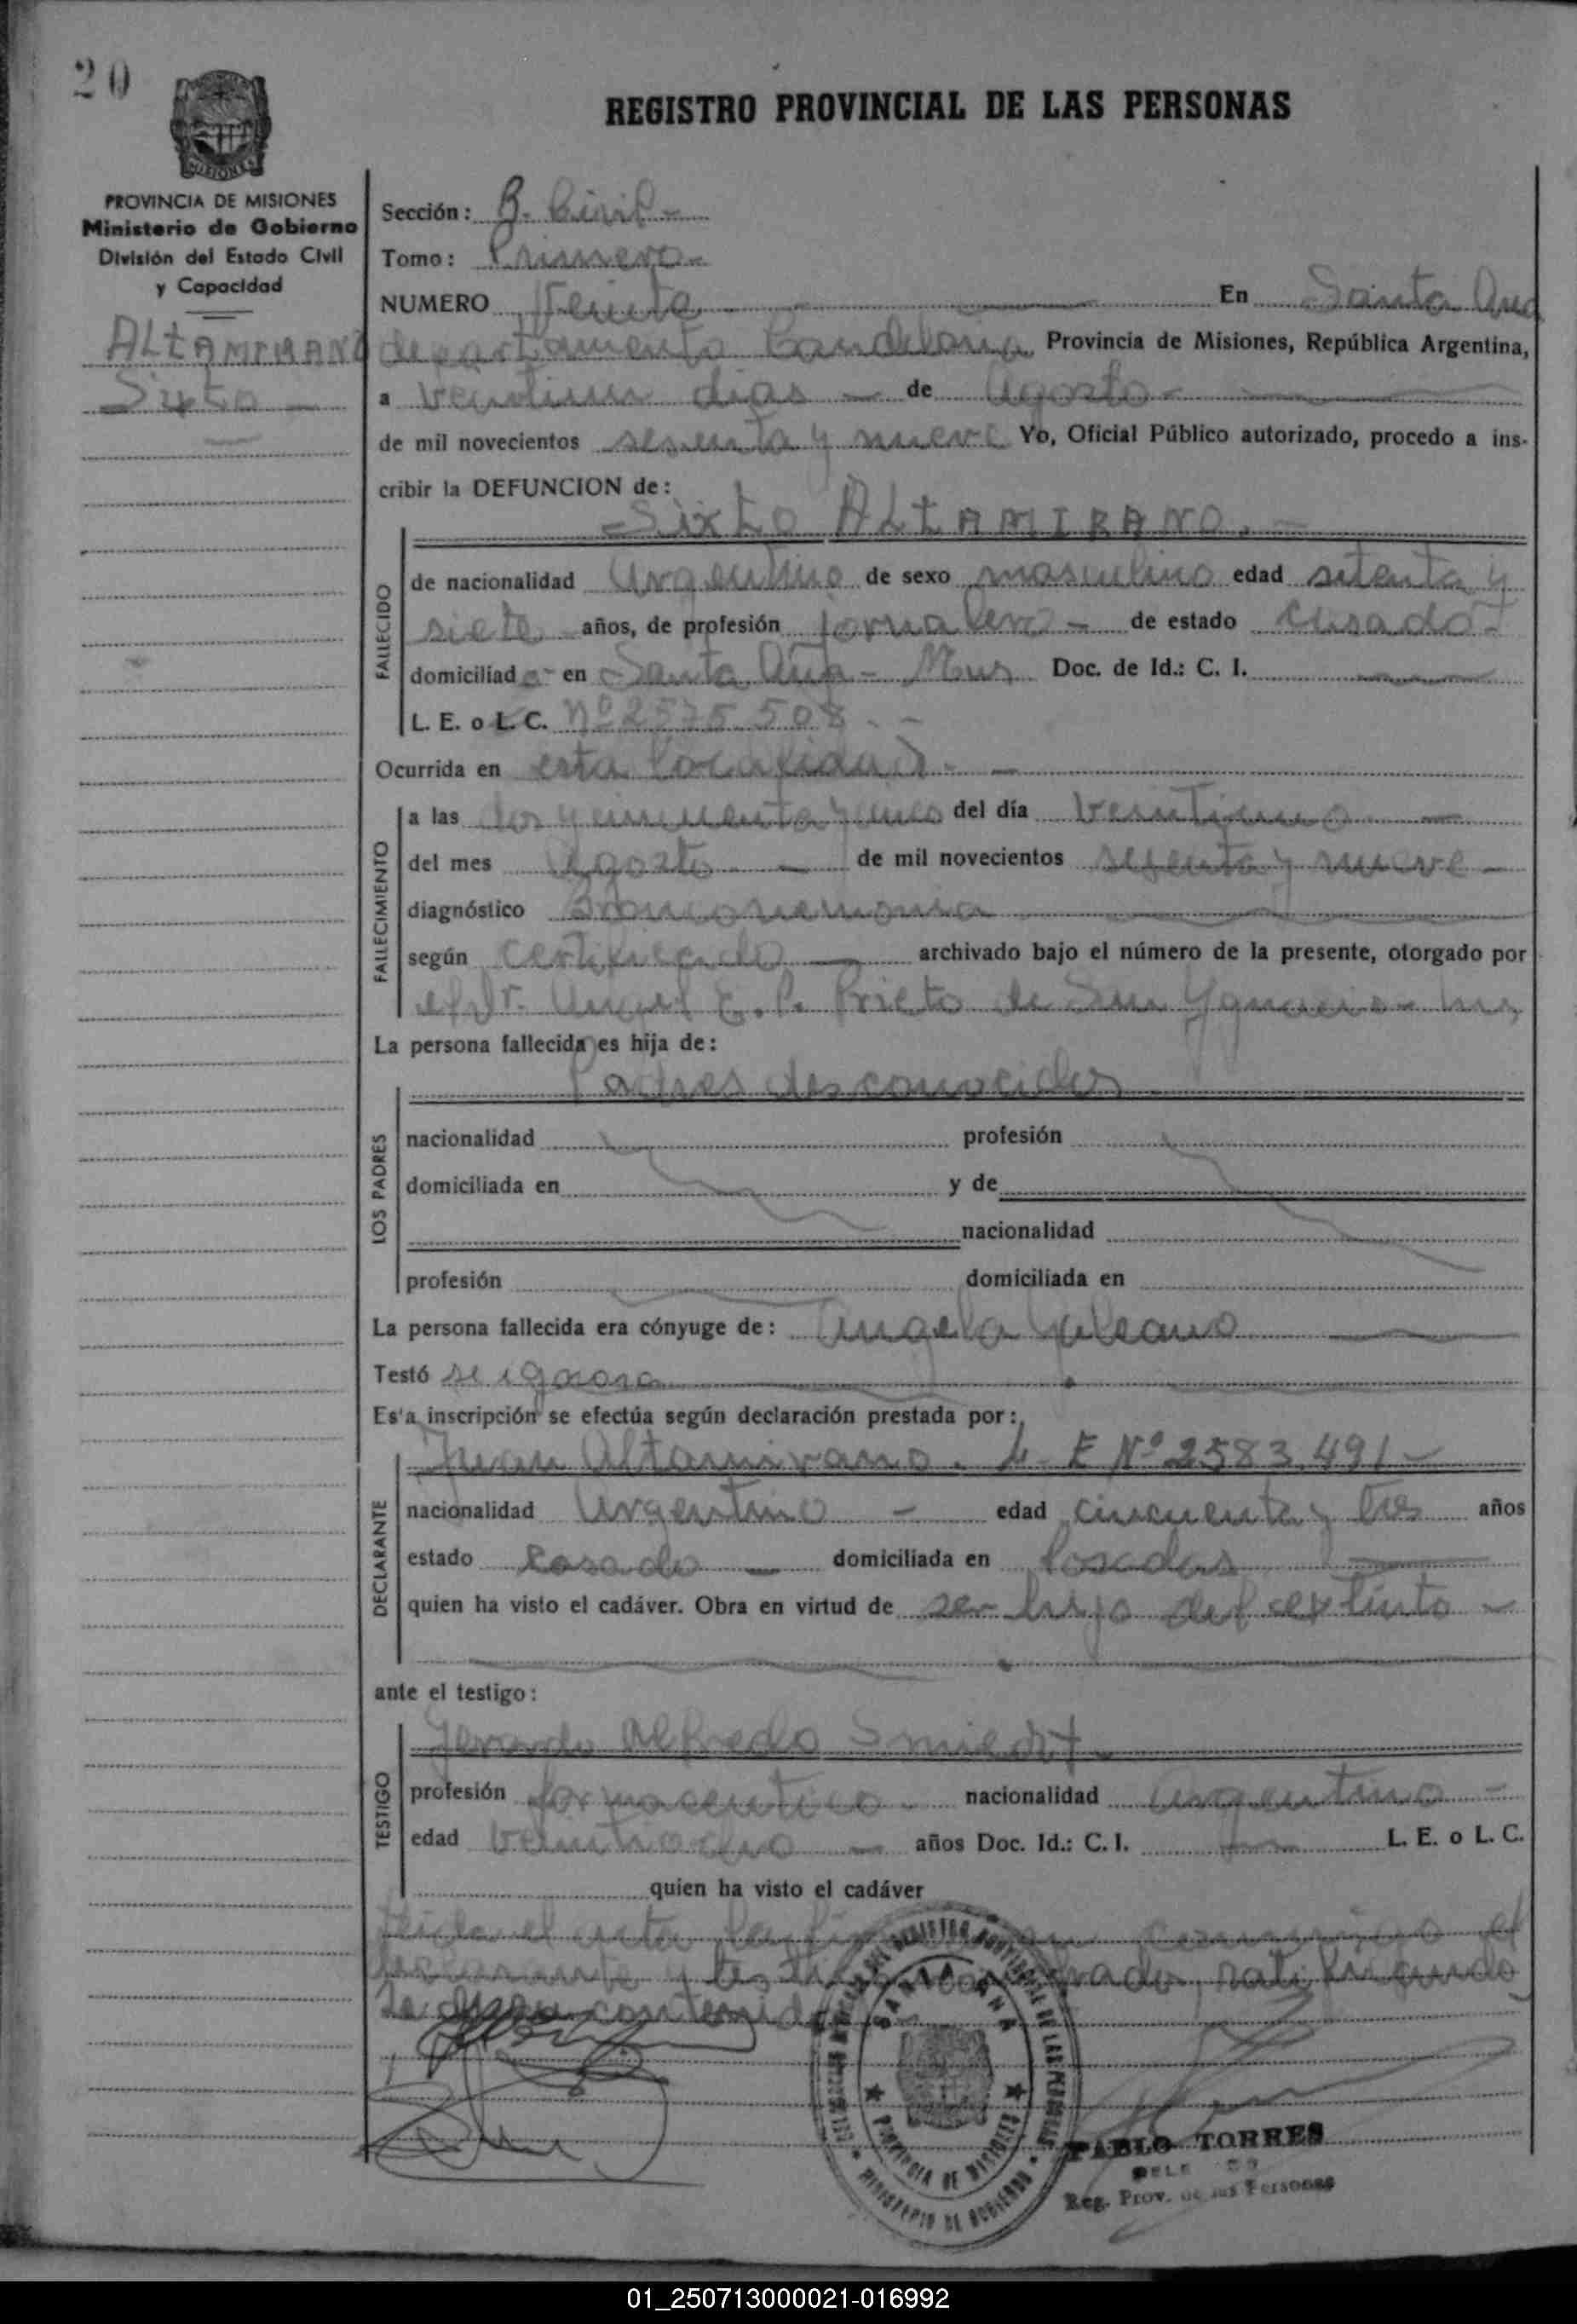 20
REGISTRO PROVINCIAL DE LAS PERSONAS
PROVINCIA DE MISIONES
Ministerio de Gobierno
División del Estado Civil
y Capacidad
ALTAMIRANO
Sixto
Sección: B. Civil -
Tomo: Primero -
NUMERO Veinte En Santa Ana
departamento Candelaria Provincia de Misiones, República Argentina,
a veintiun dias - de Agosto -
de mil novecientos sesenta y nueve Yo, Oficial Público autorizado, procedo a ins-
cribir la DEFUNCION de:
- Sixto ALTAMIRANO. -
FALLECIDO
de nacionalidad Argentino de sexo masculino edad setenta y
siete años, de profesión jornalero - de estado casado -
domiciliado - en Santa Ana - Mnes Doc. de Id.: C. I.
L. E. o L. C. Nº 2575.508 . -
Ocurrida en esta localidad - -
FALLECIMIENTO
a las dos y cincuenta y cinco del día veintiuno -
del mes Agosto - - de mil novecientos sesenta y nueve -
diagnóstico Bronconeumonia
según certificado - archivado bajo el número de la presente, otorgado por
el Dr. Angel E. P. Prieto de San Ygnacio - Mns
La persona fallecida es hija de:
Padres desconocidos
LOS PADRES
nacionalidad profesión
domiciliada en y de
nacionalidad
profesión domiciliada en
La persona fallecida era cónyuge de: Angela Galeano
Testó se ignora
Esta inscripción se efectúa según declaración prestada por:
Juan Altamirano. L. E Nº 2583.491 -
DECLARANTE
nacionalidad Argentino - edad cincuenta y tres años
estado Casado - domiciliada en Posadas
quien ha visto el cadáver. Obra en virtud de ser hijo del extinto -
ante el testigo:
TESTIGO
Gerardo Alfredo Smiedt
profesión farmaceutico - nacionalidad Argentino -
edad veintiocho - años Doc. Id.: C. I. L. E. o L. C.
quien ha visto el cadáver
Leida el acta la firman conmigo el
declarante y testigo nombrado, ratificando
se contenido
SANTA ANA
PROVINCIA DE MISIONES
MINISTERIO DE GOBIERNO
PABLO TORRES
Reg. Prov. de las Personas
01_250713000021-016992